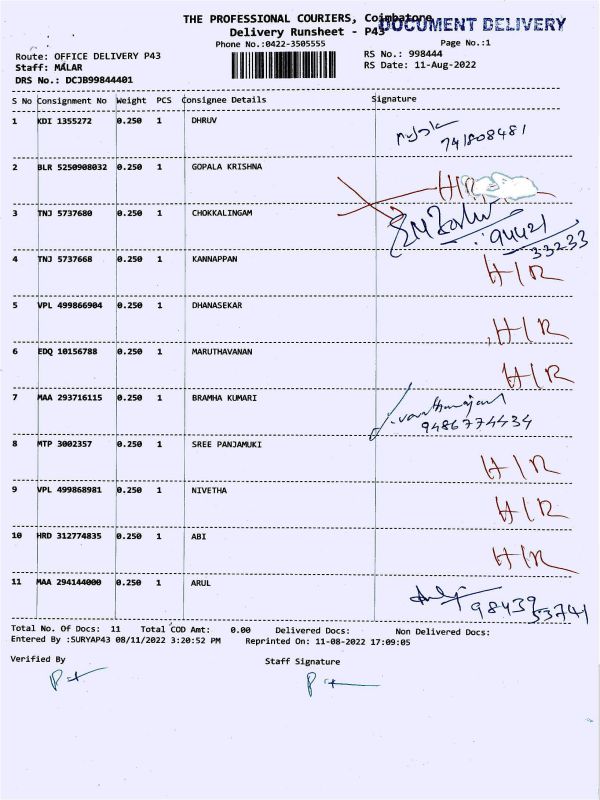 THE PROFESSIONAL COURIERS, Coimbatore
DOCUMENT DELIVERY
Delivery Runsheet - P43
Phone No.:0422-3505555
Page No.:1
Route: OFFICE DELIVERY P43
RS No.: 998444
Staff: MALAR
RS Date: 11-Aug-2022
DRS No.: DCJB99844401
S No Consignment No Weight PCS Consignee Details Signature
1 KDI 1355272 0.250 1 DHRUV
741808481
2 BLR 5250908032 0.250 1 GOPALA KRISHNA
3 TNJ 5737680 0.250 1 CHOKKALINGAM
94421
33233
4 TNJ 5737668 0.250 1 KANNAPPAN H/R
5 VPL 499866904 0.250 1 DHANASEKAR H/R
6 EDQ 10156788 0.250 1 MARUTHAVANAN H/R
7 MAA 293716115 0.250 1 BRAMHA KUMARI
9486774434
8 MTP 3002357 0.250 1 SREE PANJAMUKI H/R
9 VPL 499868981 0.250 1 NIVETHA H/R
10 HRD 312774835 0.250 1 ABI H/R
11 MAA 294144000 0.250 1 ARUL
98439
53741
Total No. Of Docs: 11 Total COD Amt: 0.00 Delivered Docs: Non Delivered Docs:
Entered By :SURYAP43 08/11/2022 3:20:52 PM Reprinted On: 11-08-2022 17:09:05
Verified By Staff Signature